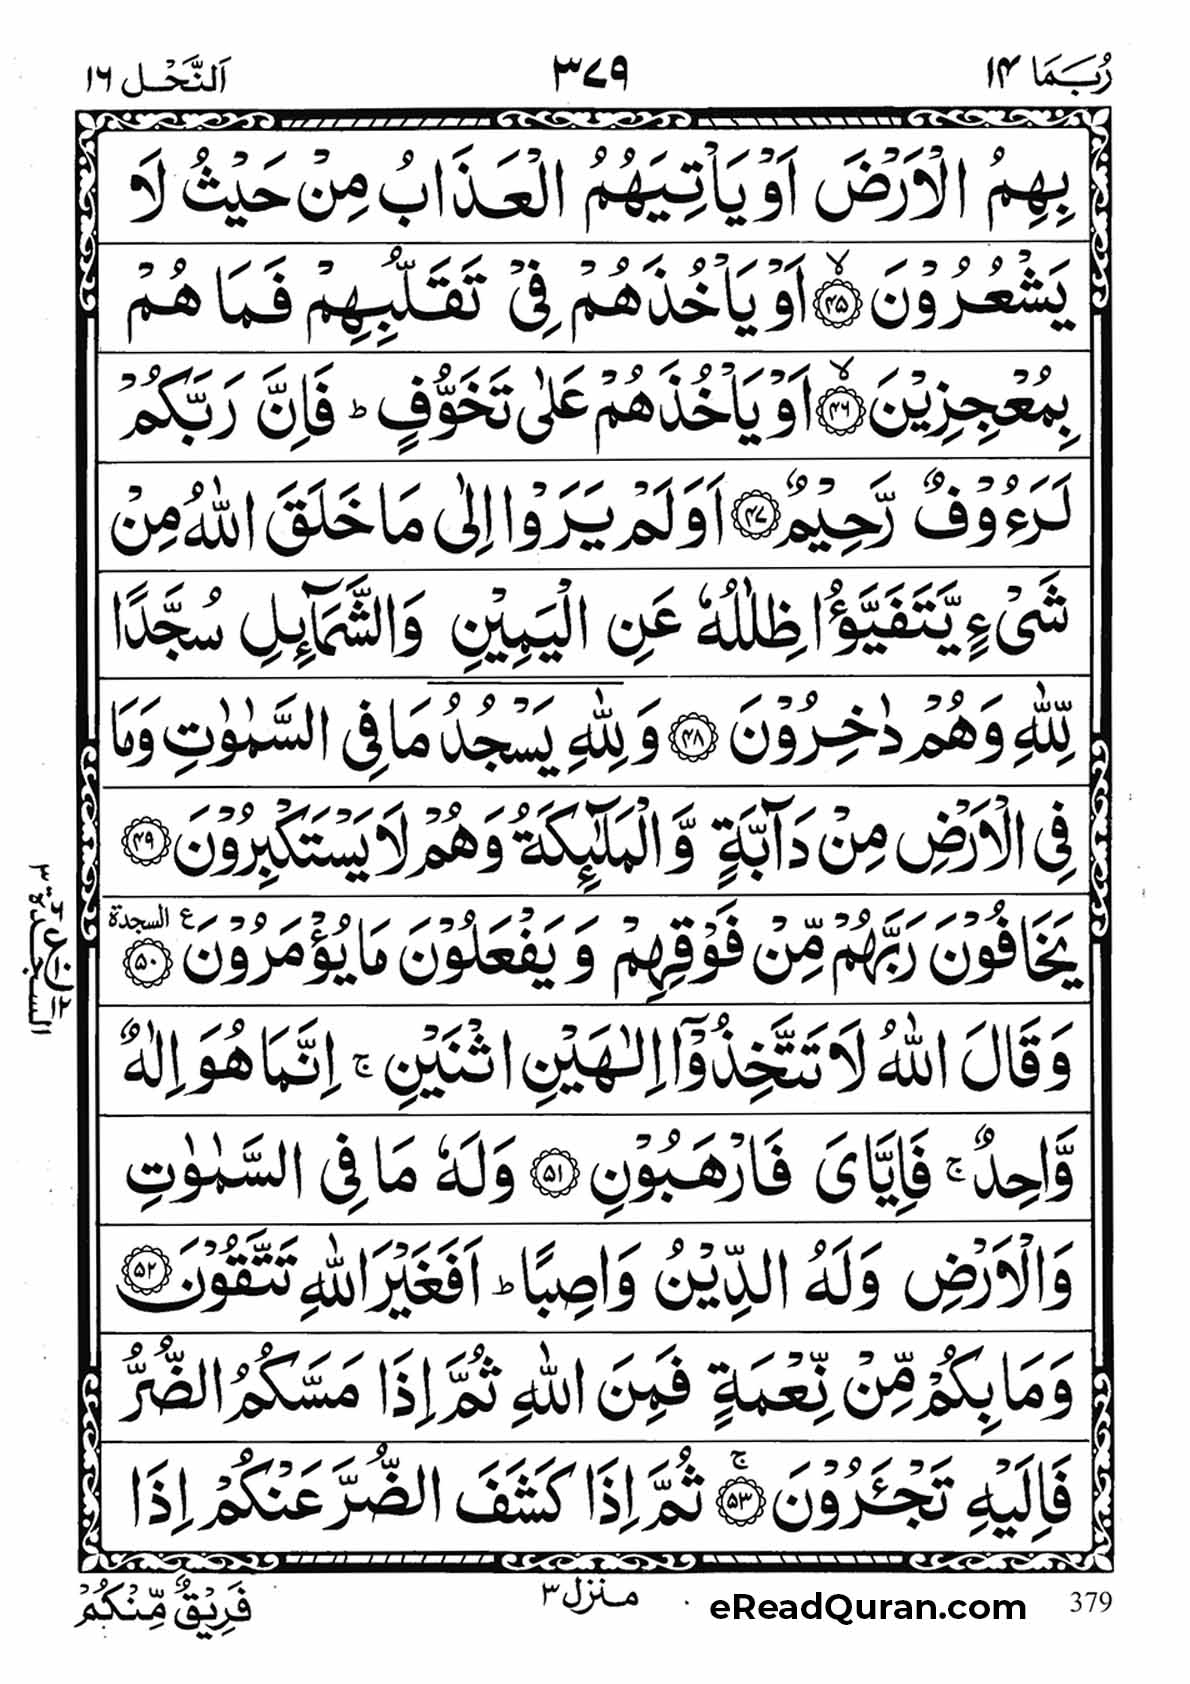 رُبَمَا ۱۴
۳۷۹
اَلنَّحْل ۱۶
بِهِمُ الْاَرْضَ اَوْ يَاْتِيَهُمُ الْعَذَابُ مِنْ حَيْثُ لَا
يَشْعُرُوْنَ ۙ﴿۴۵﴾ اَوْ يَاْخُذَهُمْ فِيْ تَقَلُّبِهِمْ فَمَا هُمْ
بِمُعْجِزِيْنَ ۙ﴿۴۶﴾ اَوْ يَاْخُذَهُمْ عَلٰى تَخَوُّفٍ ؕ فَاِنَّ رَبَّكُمْ
لَرَءُوْفٌ رَّحِيْمٌ ﴿۴۷﴾ اَوَلَمْ يَرَوْا اِلٰى مَا خَلَقَ اللّٰهُ مِنْ
شَيْءٍ يَّتَفَيَّؤُا ظِلٰلُهٗ عَنِ الْيَمِيْنِ وَالشَّمَآئِلِ سُجَّدًا
لِّلّٰهِ وَهُمْ دٰخِرُوْنَ ﴿۴۸﴾ وَلِلّٰهِ يَسْجُدُ مَا فِي السَّمٰوٰتِ وَمَا
فِي الْاَرْضِ مِنْ دَآبَّةٍ وَّالْمَلٰٓئِكَةُ وَهُمْ لَا يَسْتَكْبِرُوْنَ ﴿۴۹﴾
يَخَافُوْنَ رَبَّهُمْ مِّنْ فَوْقِهِمْ وَيَفْعَلُوْنَ مَا يُؤْمَرُوْنَ ع السجدة ﴿۵۰﴾
وَقَالَ اللّٰهُ لَا تَتَّخِذُوْٓا اِلٰهَيْنِ اثْنَيْنِ ۚ اِنَّمَا هُوَ اِلٰهٌ
وَّاحِدٌ ۚ فَاِيَّايَ فَارْهَبُوْنِ ﴿۵۱﴾ وَلَهٗ مَا فِي السَّمٰوٰتِ
وَالْاَرْضِ وَلَهُ الدِّيْنُ وَاصِبًا ؕ اَفَغَيْرَ اللّٰهِ تَتَّقُوْنَ ﴿۵۲﴾
وَمَا بِكُمْ مِّنْ نِّعْمَةٍ فَمِنَ اللّٰهِ ثُمَّ اِذَا مَسَّكُمُ الضُّرُّ
فَاِلَيْهِ تَجْـَٔرُوْنَ ۚ﴿۵۳﴾ ثُمَّ اِذَا كَشَفَ الضُّرَّ عَنْكُمْ اِذَا
السجدة ۳
فَرِيْقٌ مِّنْكُمْ
منزل ۳
eReadQuran.com
379